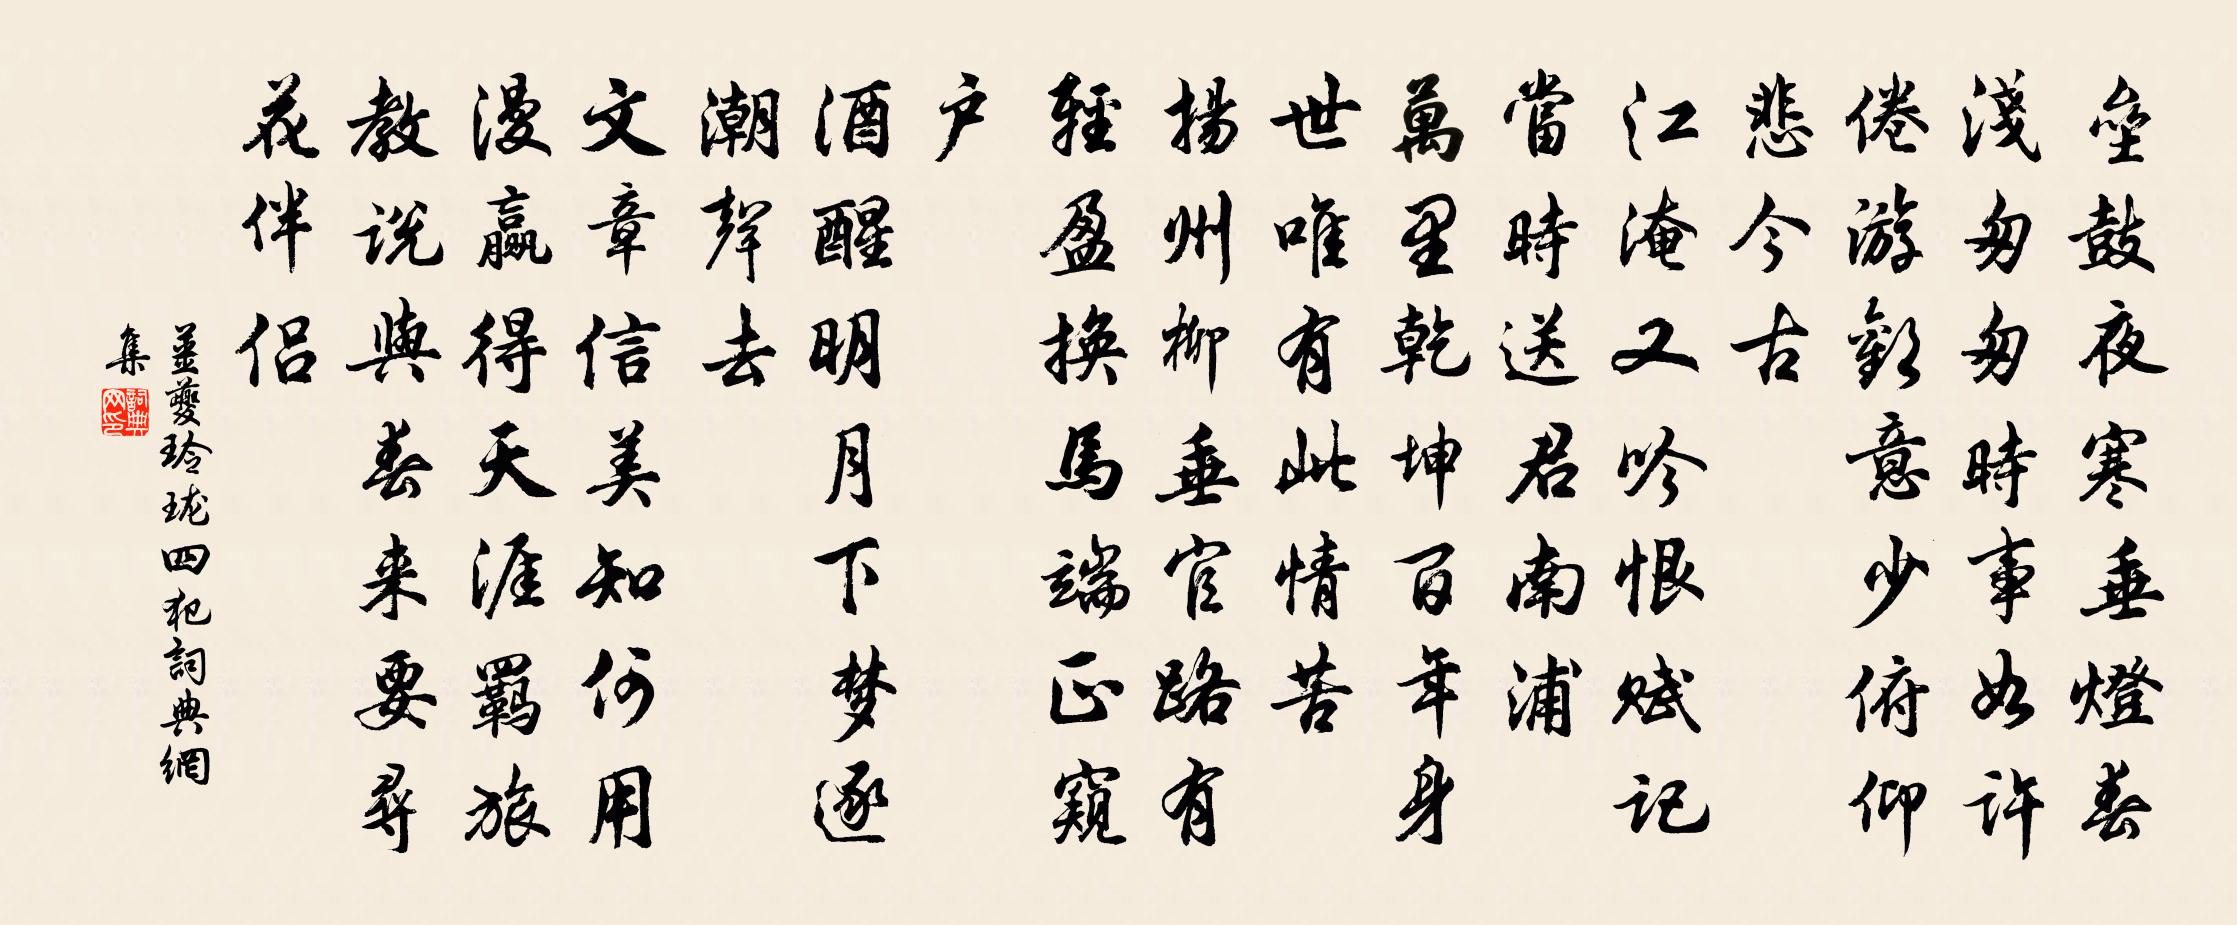 壘鼓夜寒垂燈春
淺匆匆時事如許
倦游歡意少俯仰
悲今古
江淹又吟恨賦記
當時送君南浦
萬里乾坤百年身
世唯有此情苦
揚州柳垂官路有
輕盈換馬端正窺
户
酒醒明月下梦逐
潮聲去
文章信美知何用
漫贏得天涯羈旅
教說與春来要尋
花伴侣
姜夔玲瓏四犯詞典網
集
詞典
网印